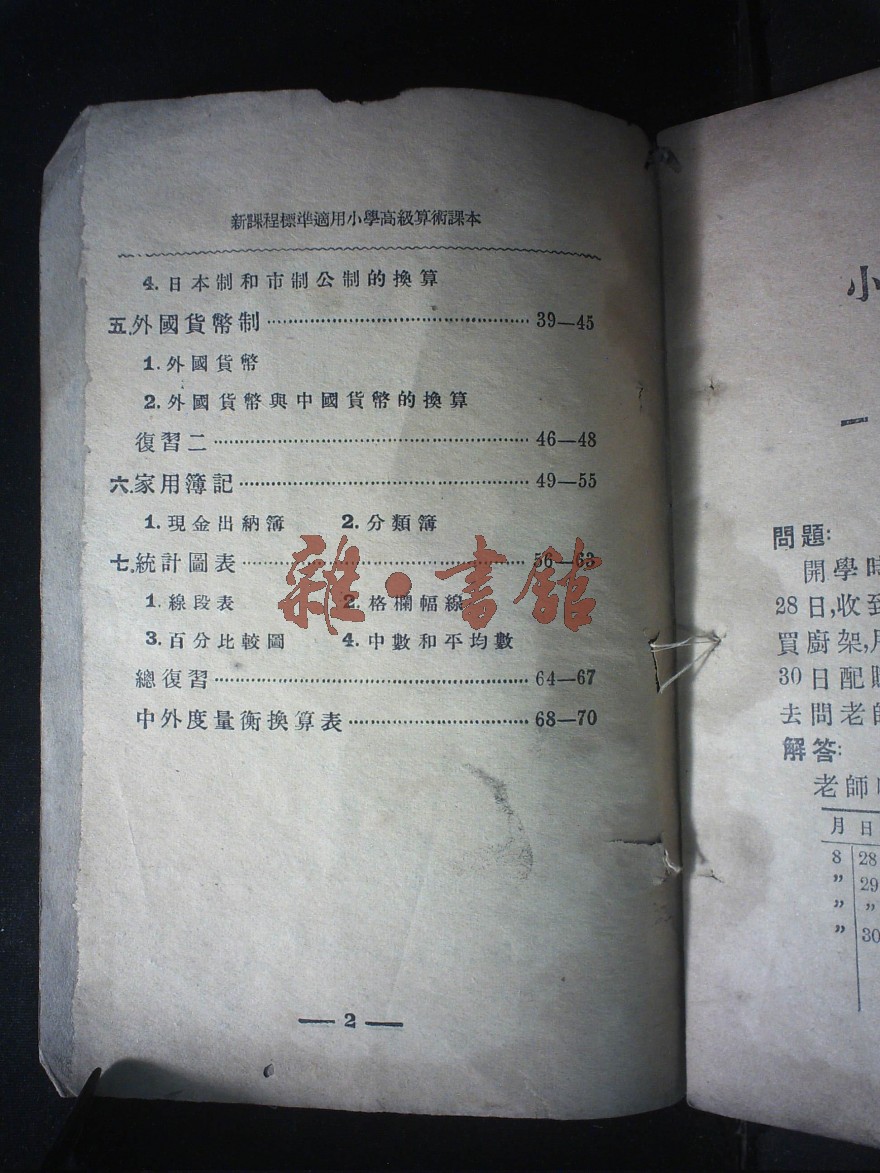 新課程標準適用小學高級算術課本
4. 日本制和市制公制的換算
五.外國貨幣制 39—45
1. 外國貨幣
2. 外國貨幣與中國貨幣的換算
復習二 46—48
六.家用簿記 49—55
1. 現金出納簿 2. 分類簿
七.統計圖表 56—63
1. 線段表 2. 格欄幅線
3. 百分比較圖 4. 中數和平均數
總復習 64—67
中外度量衡換算表 68—70
雜·書館
— 2 —
小
一
問題:
開學時
28日,收到
買廚架,用
30日配
去問老師
解答:
老師
月 日
8 28
〃 29
〃 〃
〃 30